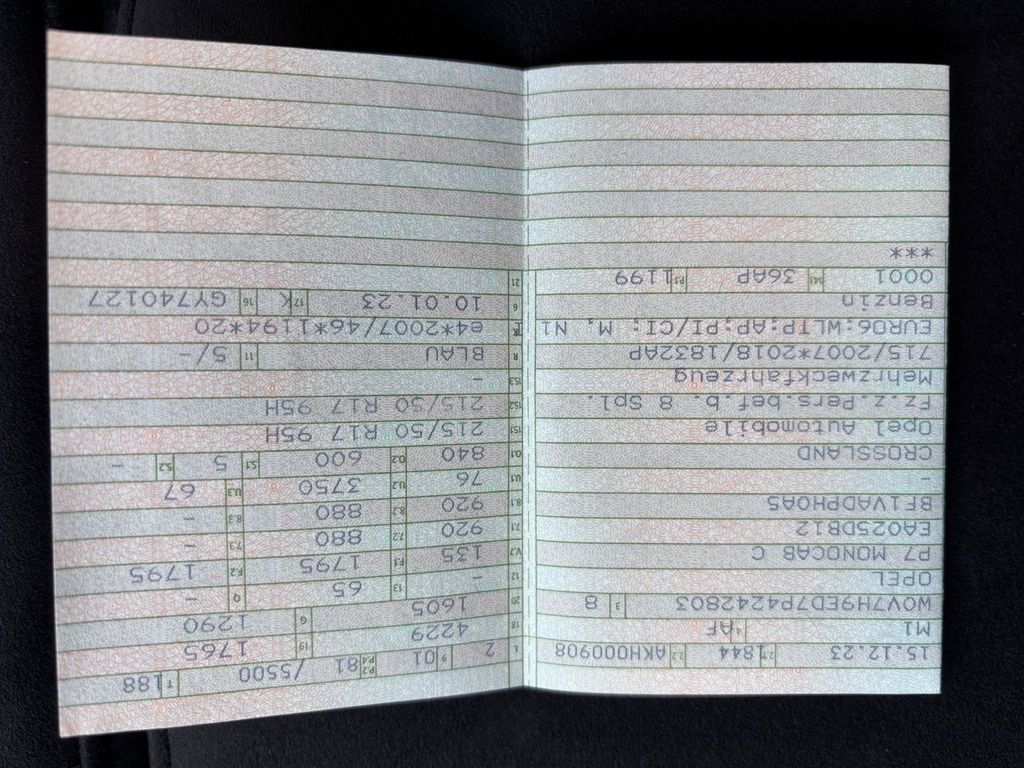 15.12.23 2.1 1844 2.2 AKH000908
M1 4 AF
W0V7H9ED7P4242803 3 8
OPEL
P7 MONOCAB C
EA025DB12
BF1VADPH0A5
-
CROSSLAND
Opel Automobile
Fz.z.Pers.bef.b. 8 Spl.
Mehrzweckfahrzeug
715/2007*2018/1832AP
EURO6:WLTP:AP:PI/CI: M, N1 I
Benzin
0001 14.1 36AP P.1 1199
***
L 2 9 01 P.2 P.4 81 /5500 T 188
18 4229 19 1765
20 1605 G 1290
12 - 13 65 Q -
V.7 135 F.1 1795 F.2 1795
7.1 920 7.2 880 7.3 -
8.1 920 8.2 880 8.3 -
U.1 76 U.2 3750 U.3 67
O.1 840 O.2 600 S.1 5 S.2 -
15.1 215/50 R17 95H
15.2 215/50 R17 95H
15.3 -
R BLAU 11 5/-
e4*2007/46*1194*20
6 10.01.23 17 K 16 GY740127
21